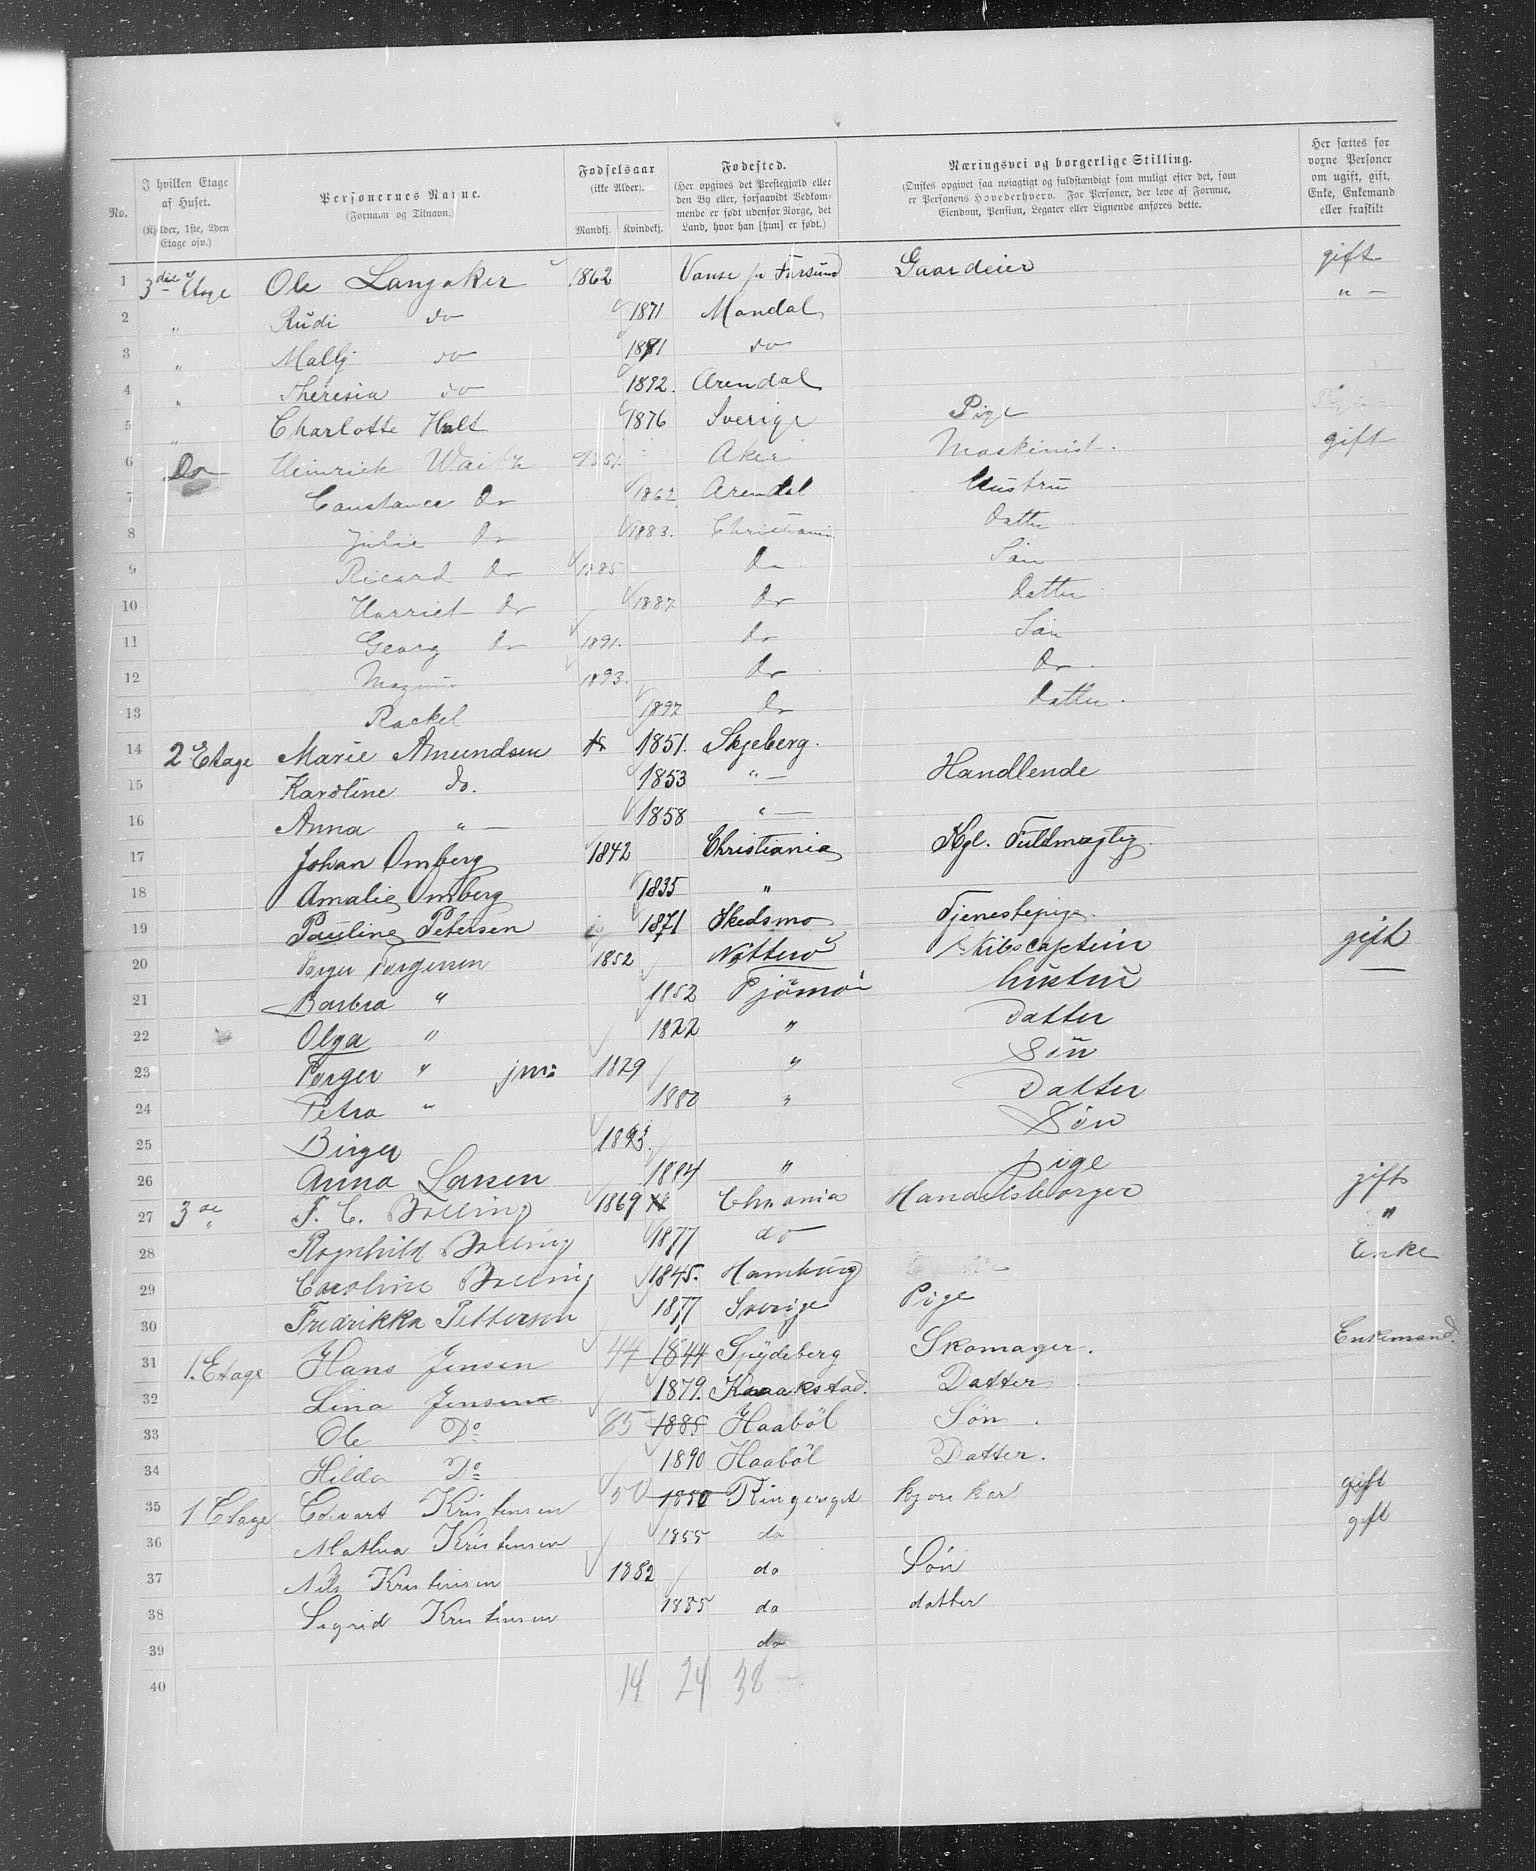 No.
I hvilken Etage af Huset. (Kjelder, 1ste, 2den Etage osv.)
Personernes Navne. (Fornavn og Tilnavn.)
Fødselsaar (ikke Alder). Mandkj. Kvindekj.
Fødested. (Her opgives det Prestegjæld eller den By eller, forsaavidt Vedkommende er født udenfor Norge, det Land, hvor han [hun] er født.)
Næringsvei og borgerlige Stilling. (Ønskes opgivet saa nøiagtigt og fuldstændigt som muligt efter det, som er Personens Hovederhverv. For Personer, der leve af Formue, Eiendom, Pension, Legater eller Lignende anføres dette.)
Her sættes for voxne Personer om ugift, gift, Enke, Enkemand eller fraskilt
1 3die Etage Ole Langaker 1862 Vanse pr Farsund Gaardeier gift
2 " Rudi do 1871 Mandal " —
3 " Mally do 1881 do
4 " Theresia do 1892. Arendal
5 " Charlotte Hult 1876 Sverige Pige
6 Do Heinrich 1851. Aker Maskinist. gift
7 Constance Do 1862 Arendal Hustru
8 Julie Do 1883. Christiania Datter
9 Ricard Do 1885 Do Søn
10 Harriet Do 1887 Do Datter
11 Georg Do 1891. Do Søn
12 Magnus 1893. Do Do
13 Rackel 1897 Do Datter.
14 2 Etage Marie Amundsen 1851. Skjeberg.
15 Karoline do. 1853 " — Handlende
16 Anna " — 1858 " —
17 Johan Omberg 1842 Christiania Kgl. Fuldmægtig.
18 Amalie Omberg 1835 "
19 Pauline Petersen 1871 Skedsmo Tjenestepige.
20 Torger Torgersen 1852 Nøtterø Skibscaptein gift
21 Barbra " 1852 Tjömö Hustru —
22 Olga " 1822 " Datter
23 Torger " jun: 1829 " Søn
24 Petra " 1880 " Datter
25 Birger 1893. Søn
26 Anna Larsen 1884 " pige
27 3de " F. C. Bølling 1869 Chrania Handelsborger gift
28 Ragnhild Bølling 1877 do "
29 Caroline Bølling 1845. Hamburg Enke
30 Fredrikka Petterson 1877 Sverige Pige
31 1. Etage Hans Jensen 44 1844 Spydeberg Skomager. Enkemand.
32 Lina Jensen 1879. Kraakstad. Datter
33 Ole Do 85 1885 Haaböl Søn.
34 Hilda Do 1890 Haaböl Datter.
35 1 Etage Edevart Kristensen 50 1850 Ringeriget kjørekar gift
36 Mathea Kristensen 1855 do gift
37 Nils Kristensen 1882 do Søn
38 Sigrid Kristensen 1885 do datter
39 do
40
14 24 38